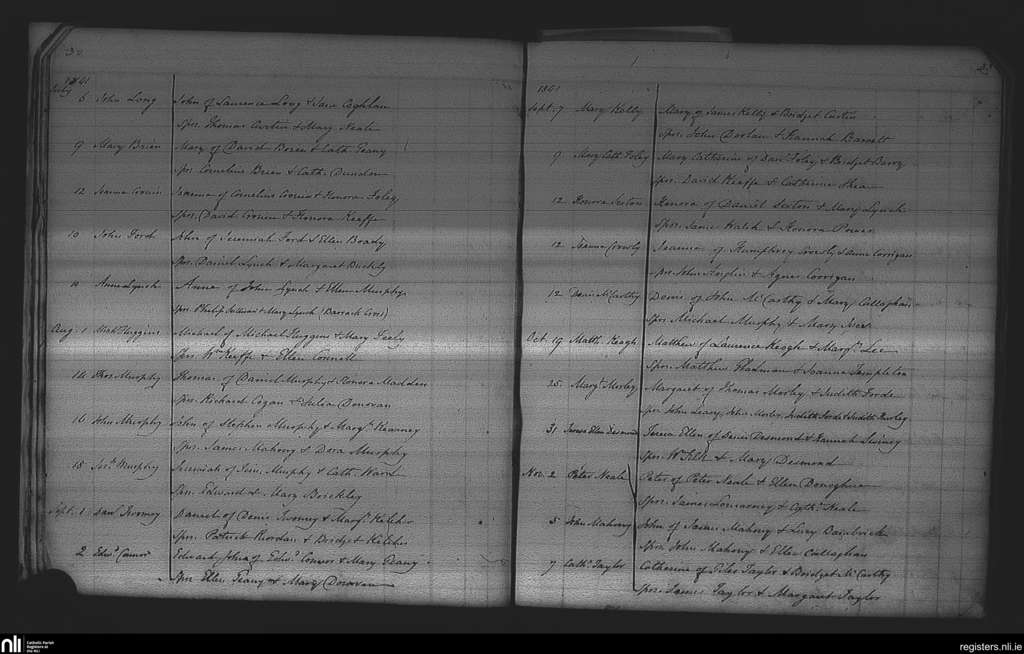 32
1841
July 6 John Long John of Laurence Long & Jane Coghlan
Spor. Thomas & Mary Neale
9 Mary Brien Mary of David Brien & Cath. Geany
Spor. Cornelius Brien & Cath. Dundon
12 Joanna Cronin Joanna of Cornelius Cronin & Honora Foley
Spor. David Cronin & Honora Keeffe
10 John Ford John of Jeremiah Ford & Ellen Brady
Spor. Daniel Lynch & Margaret Buckley
11 Anne Lynch Anne of John Lynch & Ellen Murphy
Spor. Philip Sullivan & Mary Lynch (Barrack Cross)
Aug. 1 Mich. Huggins Michael of Michael Huggins & Mary Feely
Spor. Wm. Keeffe & Ellen Connell
14 Thos. Murphy Thomas of Daniel Murphy & Honora Madden
Spor. Richard Cogan & Julia Donovan
16 John Murphy John of Stephen Murphy & Margt. Kearney
Spor. James Mahony & Dora Murphy
15 Murphy Jeremiah of Murphy & Cath. Ward
Spor. Edward & Mary Brickley
Sept. 1 Danl. Twomey Daniel of Denis Twomey & Margt. Keleher
Spor. Patrick Riordan & Bridget Keleher
2 Edwd. Connor Edward John of Edwd. Connor & Mary Geany
Spor. Ellen Geany & Mary Donovan
1841
Sept. 7 Mary Kelly Mary of James Kelly & Bridget
Spor. John & Hannah Barrett
9 Mary Cath. Foley Mary Catherine of Danl. Foley & Bridget Barry
Spor. David Keeffe & Catherine Shea
12 Honora Sexton Honora of Daniel Sexton & Mary Lynch
Spor. James Walsh & Honora Power
12 Joanna Crowly Joanna of Humphrey Crowly & Anne Corrigan
Spor. John & Agnes Corrigan
12 Denis McCarthy Denis of John McCarthy & Mary Callaghan
Spor. Michael Murphy & Mary
Oct. 19 Matth. Keogh Matthew of Laurence Keogh & Margt. Lee
Spor. Matthew & Joanna Templeton
25 Margt. Mosley Margaret of Thomas Mosley & Judith Forde
Spor. John Leary, John Mosley, Judith Forde & Judith Mosley
31 Teresa Ellen Desmond Teresa Ellen of Denis Desmond & Hannah Swiney
Spor. Wm. & Mary Desmond
Nov. 2 Peter Neale Peter of Peter Neale & Ellen Donoghue
Spor. James & Cath. Neale
5 John Mahony John of Mahony & Lucy Bainbrick
Spor. John Mahony & Ellen Callaghan
7 Cath. Taylor Catherine of Giles Taylor & Bridget McCarthy
Spor. James Taylor & Margaret Taylor
nli
Catholic Parish
Registers at
the NLI
registers.nli.ie